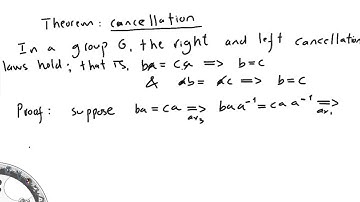 Theorem: cancellation
In a group G, the right and left cancellation
laws hold; that is, ba = ca => b=c
& ab = ac => b=c
Proof: suppose ba = ca => baa⁻¹ = caa⁻¹ =>
ax₃ ax₁